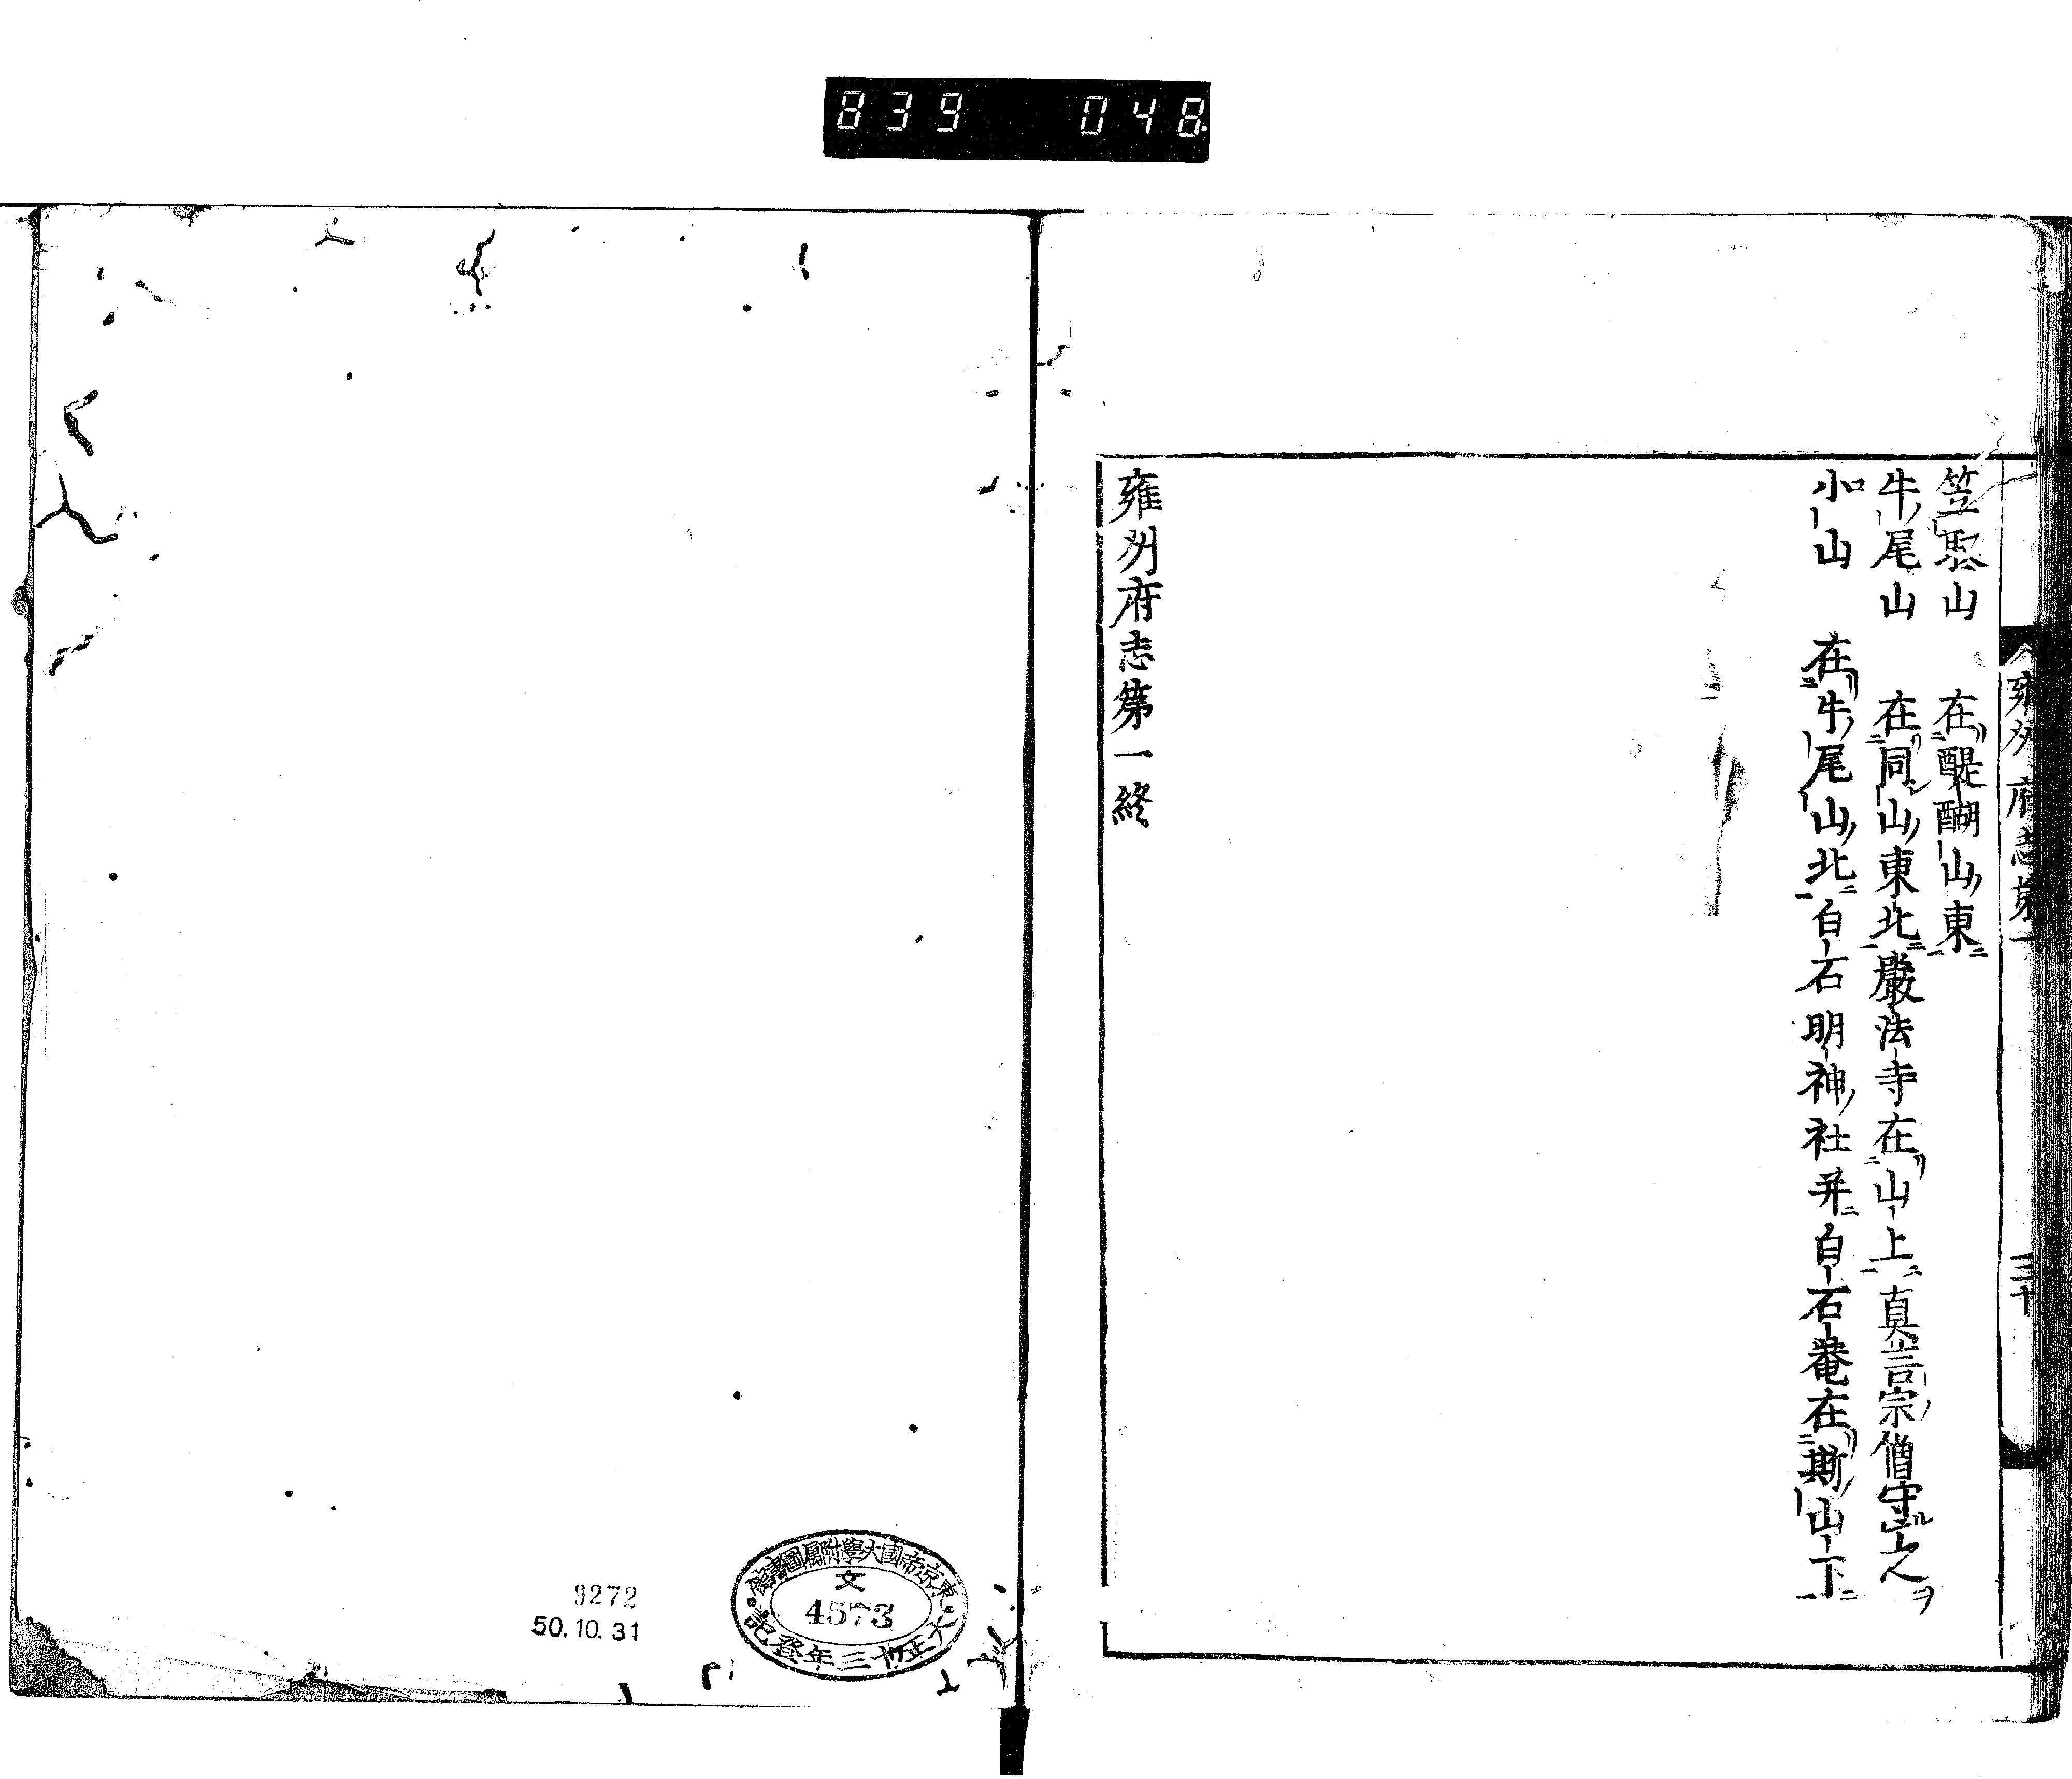 839 048
雍州府志第一
三十
笠取山 在醍醐山東
牛尾山 在同山東北嚴法寺在山上真言宗僧守之
小山 在牛尾山北白石明神社并白石菴在斯山下
雍州府志第一終
東京帝國大學附属圖書館
文
4573
大正十三年登記
9272
50.10.31